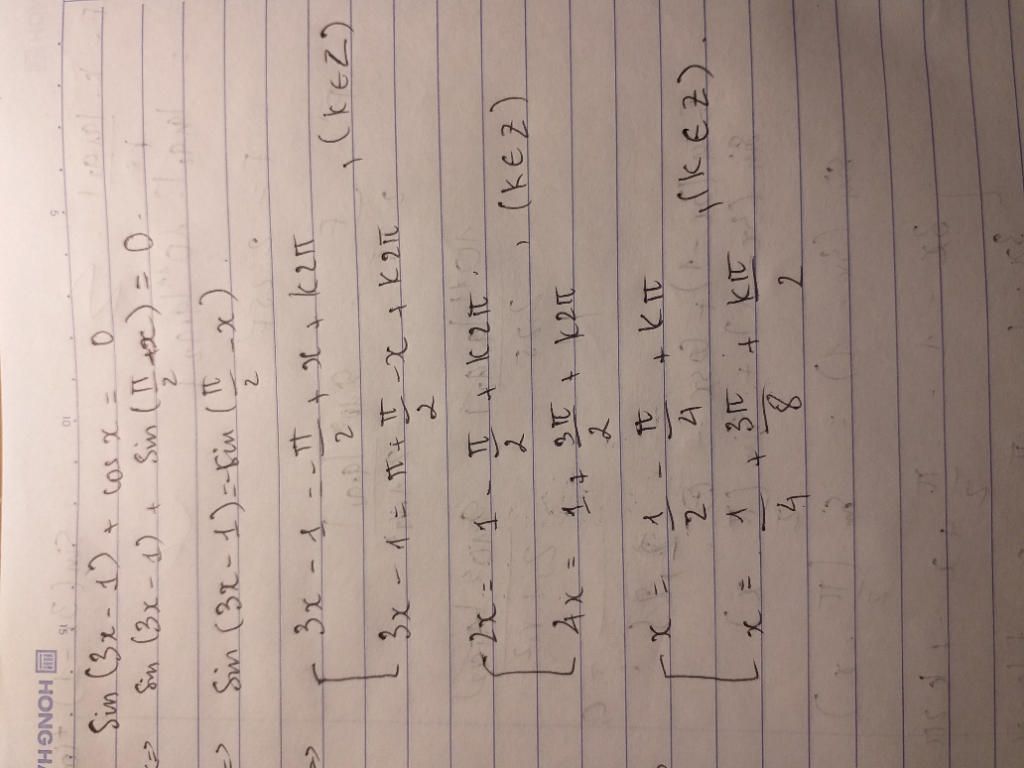 HONGHA
Sin (3x - 1) + cos x = 0
=> Sin (3x - 1) + Sin (π/2 + x) = 0
=> Sin (3x - 1) = - Sin (π/2 - x)
=> [ 3x - 1 = -π/2 + x + k2π
[ 3x - 1 = π + π/2 - x + k2π , (k ∈ Z)
[ 2x = 1 - π/2 + k2π
[ 4x = 1 + 3π/2 + k2π , (k ∈ Z)
[ x = 1/2 - π/4 + kπ
[ x = 1/4 + 3π/8 + kπ/2 , (k ∈ Z).
5
10
15